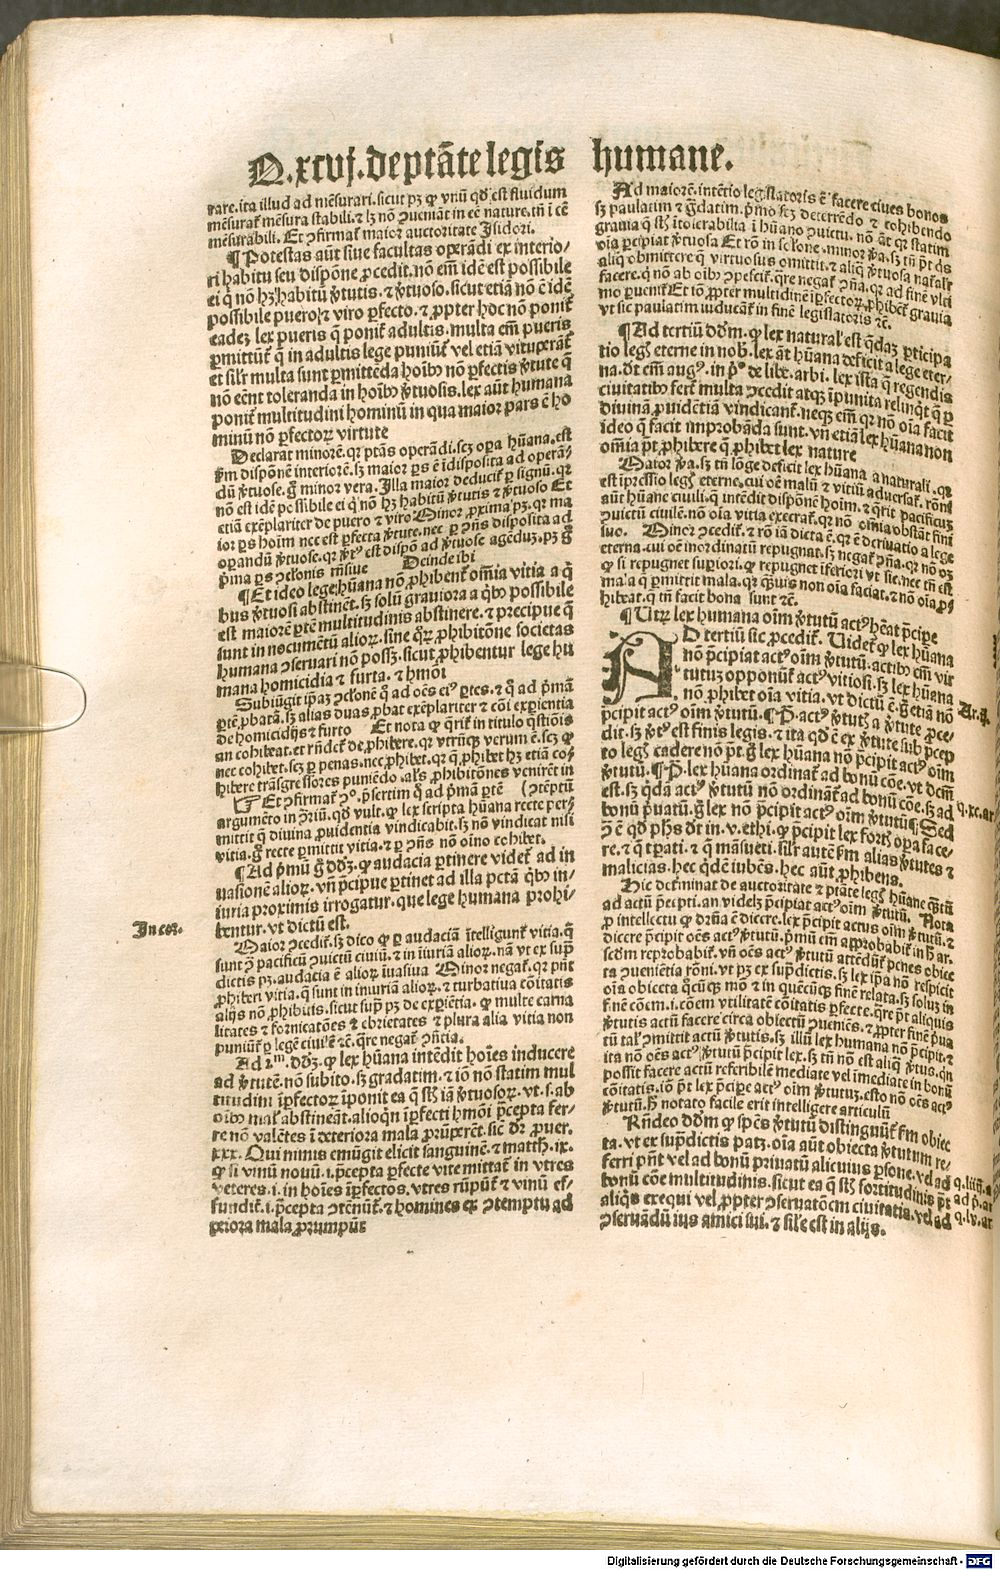 Q.xcvj.de ptāte legis humane.
rare.ita illud ad mēsurari.sicut pꝫ ꝙ vnū qđ est fluidum
mēsurat̄ mēsura stabili.⁊ lꝫ nō ꝯueniāt in eē nature.tn̄ ī eē
mēsurabili. Et ꝯfirmat̄ maior auctoritate Isidori.
¶ Potestas aūt siue facultas operādi ex interio⸗
ri habitu seu dispōne ꝓcedit.nō em̄ idē est possibile
ei q̄ nō hꝫ habitū ꝟtutis.⁊ ꝟtuoso.sicut etiā nō ē idē
possibile pueroꝝ ⁊ viro ꝑfecto.⁊ ꝓpter hoc nō ponit̄
eadeꝫ lex pueris q̄ ponit̄ adultis.multa em̄ pueris
ꝑmittūt̄ q̄ in adultis lege puniūt̄ vel etiā vituꝑāt̄
et silr̄ multa sunt ꝑmittēda hoībꝰ nō ꝑfectis ꝟtute q̄
nō eēnt toleranda in hoībꝰ ꝟtuosis.lex aūt humana
ponit̄ multitudini hominū in qua maior pars ē ho
minū nō ꝑfectoꝝ virtute
Declarat minorē.qꝛ ptās operādi.scꝫ oꝑa hūana.est
ẜm dispōnē interiorē.sꝫ maior ꝑs ē īdisposita ad operā⸗
dū ꝟtuose.g̊ minor vera. Illa maior deducit̄ ꝑ signū.qꝛ
nō est idē possibile ei q̄ nō hꝫ habitū ꝟtutis ⁊ ꝟtuoso Et
etiā exēplariter de puero ⁊ viro Minor ꝓxima pꝫ.qꝛ ma
ior ꝑs hoīm nec est ꝑfecta ꝟtute.nec ꝑ ꝯn̄s disposita ad
oꝑandū ꝟtuose.qꝛ ꝟtꝰ est dispō ad ꝟtuose agēduꝫ.pꝫ g̊
p̄ma ꝑs ꝯclōnis rn̄siue Deinde ibi
¶ Et ideo lege hūana nō ꝓhibent̄ om̄ia vitia a q̄
bus ꝟtuosi abstinēt.sꝫ solū grauiora a qbꝰ possibile
est maiorē ꝑtē multitudinis abstinere.⁊ precipue q̄
sunt in nocumētū alioꝝ.sine q̄ꝝ ꝓhibitōne societas
humana ꝯseruari nō possꝫ.sicut ꝓhibentur lege hu
mana homicidia ⁊ furta.⁊ hmōi
Subiūgit ip̄aꝫ ꝯclōnē q̄ ad oēs eiꝰ ꝑtes.⁊ q̄ ad p̄mā
ꝑtē ꝓbatā.sꝫ alias duas ꝓbat exēplariter ⁊ cōi exꝑientia
de homicidijs ⁊ furto Et nota ꝙ q̄rit̄ in titulo q̄stiōis
an cohibeat.et rn̄det̄ de ꝓhibere.qꝛ vtrūqꝫ verum ē.scꝫ ꝙ
nec cohibet.scꝫ ꝑ penas.nec ꝓhibet.qꝛ q̄ ꝓhibet hꝫ etiā co⸗
hibere trāsgressores puniēdo.als̄ ꝓhibitōnes venirēt in
☞ Et ꝯfirmat̄ ꝯº.p̄sertim q̄ ad p̄mā ꝑtē (ꝯtēptū
argumēto in ꝯriū.qđ vult.ꝙ lex scripta hūana recte ꝑ⸗
mittit q̄ diuina ꝓuidentia vindicabit.sꝫ nō vindicat nisi
vitia.g̊ recte ꝑmittit vitia.⁊ ꝑ ꝯn̄s nō oīno cohibet.
¶ Ad p̄mū g̊ d̄dꝫ.ꝙ audacia ꝑtinere videt̄ ad in
uasionē alioꝝ.vn̄ p̄cipue ꝑtinet ad illa pctā qbꝰ in⸗
iuria proximis irrogatur.que lege humana prohi⸗
bentur.vt dictū est.
In cor.
Maior ꝯcedit̄.sꝫ dico ꝙ ꝑ audaciā ītelligunt̄ vitia.q̄
sunt ꝯ pacificū ꝯuictū ciuiū.⁊ in iuriā alioꝝ.nā vt ex sup̄
dictis pꝫ.audacia ē alioꝝ īuasiua Minor negat̄.qꝛ pn̄t
ꝓhiberi vitia.q̄ sunt in iniuriā alioꝝ.⁊ turbatiua cōitatis
alijs nō ꝓhibitis.sicut sup̄ pꝫ de exꝑiētia.ꝙ multe carna
litates ⁊ fornicatōes ⁊ ebrietates ⁊ plura alia vitia non
puniūt̄ ꝑ legē ciuilē ⁊c̄.q̄re negat̄ ꝯn̄tia.
Ad 2ᵐ. d̄dꝫ.ꝙ lex hūana intēdit hoīes inducere
ad ꝟtutē.nō subito.sꝫ gradatim.⁊ iō nō statim mul
titudini īꝑfectoꝝ īponit ea q̄ sūt iā ꝟtuosoꝝ.vt.s.ab
oībꝰ mal̄ abstineāt.alioqn̄ īꝑfecti hmōi p̄cepta fer⸗
re nō valētes ī deteriora mala ꝓrūꝑēt.sic dr̄ ꝓuer.
xxx. Qui nimis emūgit elicit sanguinē.⁊ matth.ix.
ꝙ si vinū nouū.i.p̄cepta ꝑfecte vite mittat̄ in vtres
veteres.i.in hoīes īꝑfectos.vtres rūpūt̄ ⁊ vinū ef⸗
fundit̄.i.p̄cepta ꝯtēnūt̄.⁊ homines ex ꝯtemptu ad
peiora mala ꝓrumpūt
Ad maiorē.intētio legislatoris ē facere ciues bonos
sꝫ paulatim ⁊ g̊datim.p̄mo scꝫ deterrēdo ⁊ cohibendo
grauia q̄ sūt ītolerabilia ī hūano ꝯuictu.nō āt qꝛ statim
oīa p̄cipiat ꝟtuosa Et rō in sclōne.minor ꝟa.sꝫ tn̄ pt̄ ds
aliq̄ obmittere q̄ virtuosus omittit.⁊ aliq̄ ꝟtuosa nāl̄r
facere.q̄ nō ab oībꝰ ꝯpescit̄.q̄re negat̄ ꝯn̄a.qꝛ ad finē vlti
mo ꝑuenit̄ Et iō ꝓpter multidinē īꝑfectoꝝ ꝓhibet̄ grauia
vt sic paulatim inducāt̄ in finē legislatoris ⁊c̄.
¶ Ad tertiū dōm.ꝙ lex natural̄ est q̄daꝫ ꝑticipa
tio legꝭ eterne in nob̄.lex āt hūana deficit a lege eter⸗
na.dt̄ em̄ augꝰ.in p̄º de lib.arbi.lex ista q̄ regendis
ciuitatibꝰ fert̄ multa ꝯcedit atqꝫ īpunita relinqt̄ q̄ ꝑ
diuinā ꝓuidētiā vindicant̄.neqꝫ em̄ qꝛ nō oīa facit
ideo q̄ facit improbāda sunt.vn̄ etiā lex hūana non
om̄ia pt̄ ꝓhibere q̄ ꝓhibet lex nature
Maior ꝟa.sꝫ tn̄ lōge deficit lex hūana a naturali.qꝛ
est īpressio legꝭ eterne.cui oē malū ⁊ vitiū aduersat̄.rōnē
aūt hūane ciuili.q̄ intēdit dispōnē hoīm.⁊ q̄rit pacificuꝫ
ꝯuictū ciuilē.nō oīa vitia execrat̄.qꝛ nō oīnia obstāt fini
suo. Minor ꝯcedit̄.⁊ rō iā dicta ē.qꝛ ē deriuatio a lege
eterna.cui oē inordinatū repugnat.sꝫ negat̄ ꝯn̄a.qꝛ nō oꝫ
ꝙ si repugnet suꝑiori.ꝙ repugnet iferiori vt sic.nec tn̄ est
mala q̄ ꝑmittit mala.qꝛ q̄uis non oīa faciat.⁊ nō oīa ꝓ⸗
hibeat.q̄ tn̄ facit bona sunt ⁊c̄.
¶ Utꝝ lex humana oīm ꝟtutū actꝰ hēat p̄cipe
AD tertiū sic ꝓcedit̄. Uidet̄ ꝙ lex hūana
nō p̄cipiat actꝰ oīm ꝟtutū.actibꝰ em̄ vir
tutuꝫ opponūt̄ actꝰ vitiosi.sꝫ lex hūana
nō ꝓhibet oīa vitia.vt dictū ē.g̊ etiā nō
Ar.ij.
p̄cipit actꝰ oīm ꝟtutū.¶ P̄.actꝰ ꝟtutꝭ a ꝟtute ꝓce⸗
dit.sꝫ ꝟtꝰ est finis legis.⁊ ita qđ ē ex ꝟtute sub p̄cep
to legꝭ cadere nō pt̄.g̊ lex hūana nō p̄cipit actꝰ oīm
ꝟtutū.¶ P̄.lex hūana ordinat̄ ad bonū cōe.vt dcm̄
est.sꝫ q̄dā actꝰ ꝟtutū nō ordinant̄ ad bonū cōe.sꝫ ad
q.xc.ar
bonū p̄uatū.g̊ lex nō p̄cipit actꝰ oīm ꝟtutū¶ Sed
ꝯ ē qđ phs dt̄ in.v.ethi.ꝙ p̄cipit lex fortꝭ oꝑa face⸗
re.⁊ q̄ tꝑati.⁊ q̄ māsueti.silr̄ autē ẜm alias ꝟtutes ⁊
malicias.hec q̄dē iubēs.hec aūt ꝓhibens.
Hic determinat de auctoritate ⁊ ptāte legꝭ hūane q̄ntū
ad actū p̄cepti.an videlꝫ p̄cipiat actꝰ oīm ꝟtutū. Nota
ꝓ intellectu ꝙ dr̄na ē dicere.lex p̄cipit actus oīm ꝟtutū.⁊
dicere p̄cipit oēs actꝰ ꝟtutū.p̄mū em̄ approbabit̄ in h̄ ar.
scd̄m reprobabit̄.vn̄ oēs actꝰ ꝟtutū attēdūt̄ penes obiec
ta ꝯuenientia rōni.vt pꝫ ex sup̄dictis.sꝫ lex ip̄a nō respicit
oīa obiecta q̄cūqꝫ mō ⁊ in quēcūqꝫ finē relata.sꝫ soluꝫ in
finē cōem.i.cōem vtilitatē cōitatis ꝑfecte.q̄re pt̄ aliquis
ꝟtutis actū facere circa obiectū ꝯueniēs.⁊ ꝓpter finē p̄ua
tū tal̄ ꝯmittit actū ꝟtutis.sꝫ illū lex humana nō p̄cipit.⁊
ita nō oēs actꝰ ꝟtutū p̄cipit lex.sꝫ tn̄ nō est aliq̄ ꝟtus.qn̄
possit facere actū referibilē mediate vel imediate in bonū
cōitatis.iō pt̄ lex p̄cipe actꝰ oīm ꝟtutuꝫ.esto nō oēs actꝰ
ꝟtutū.h̄ notato facile erit intelligere articulū
Rn̄deo dōm ꝙ sp̄es ꝟtutū distinguūt̄ ẜm obiec
ta.vt ex sup̄dictis patꝫ.oīa aūt obiecta ꝟtutum re⸗
ferri pn̄t vel ad bonū priuatū alicuius ꝑsone.vel ad
q.liiij.a
bonū cōe multitudinis.sicut ea q̄ sūt fortitudinis pt̄
ad p̄.ar
aliq̄s exequi vel ꝓpter ꝯseruatōem ciuitatis.vel ad
q.lv.ar
ꝯseruādū ius amici sui.⁊ sil̄e est in alijs.
Digitalisierung gefördert durch die Deutsche Forschungsgemeinschaft - DFG